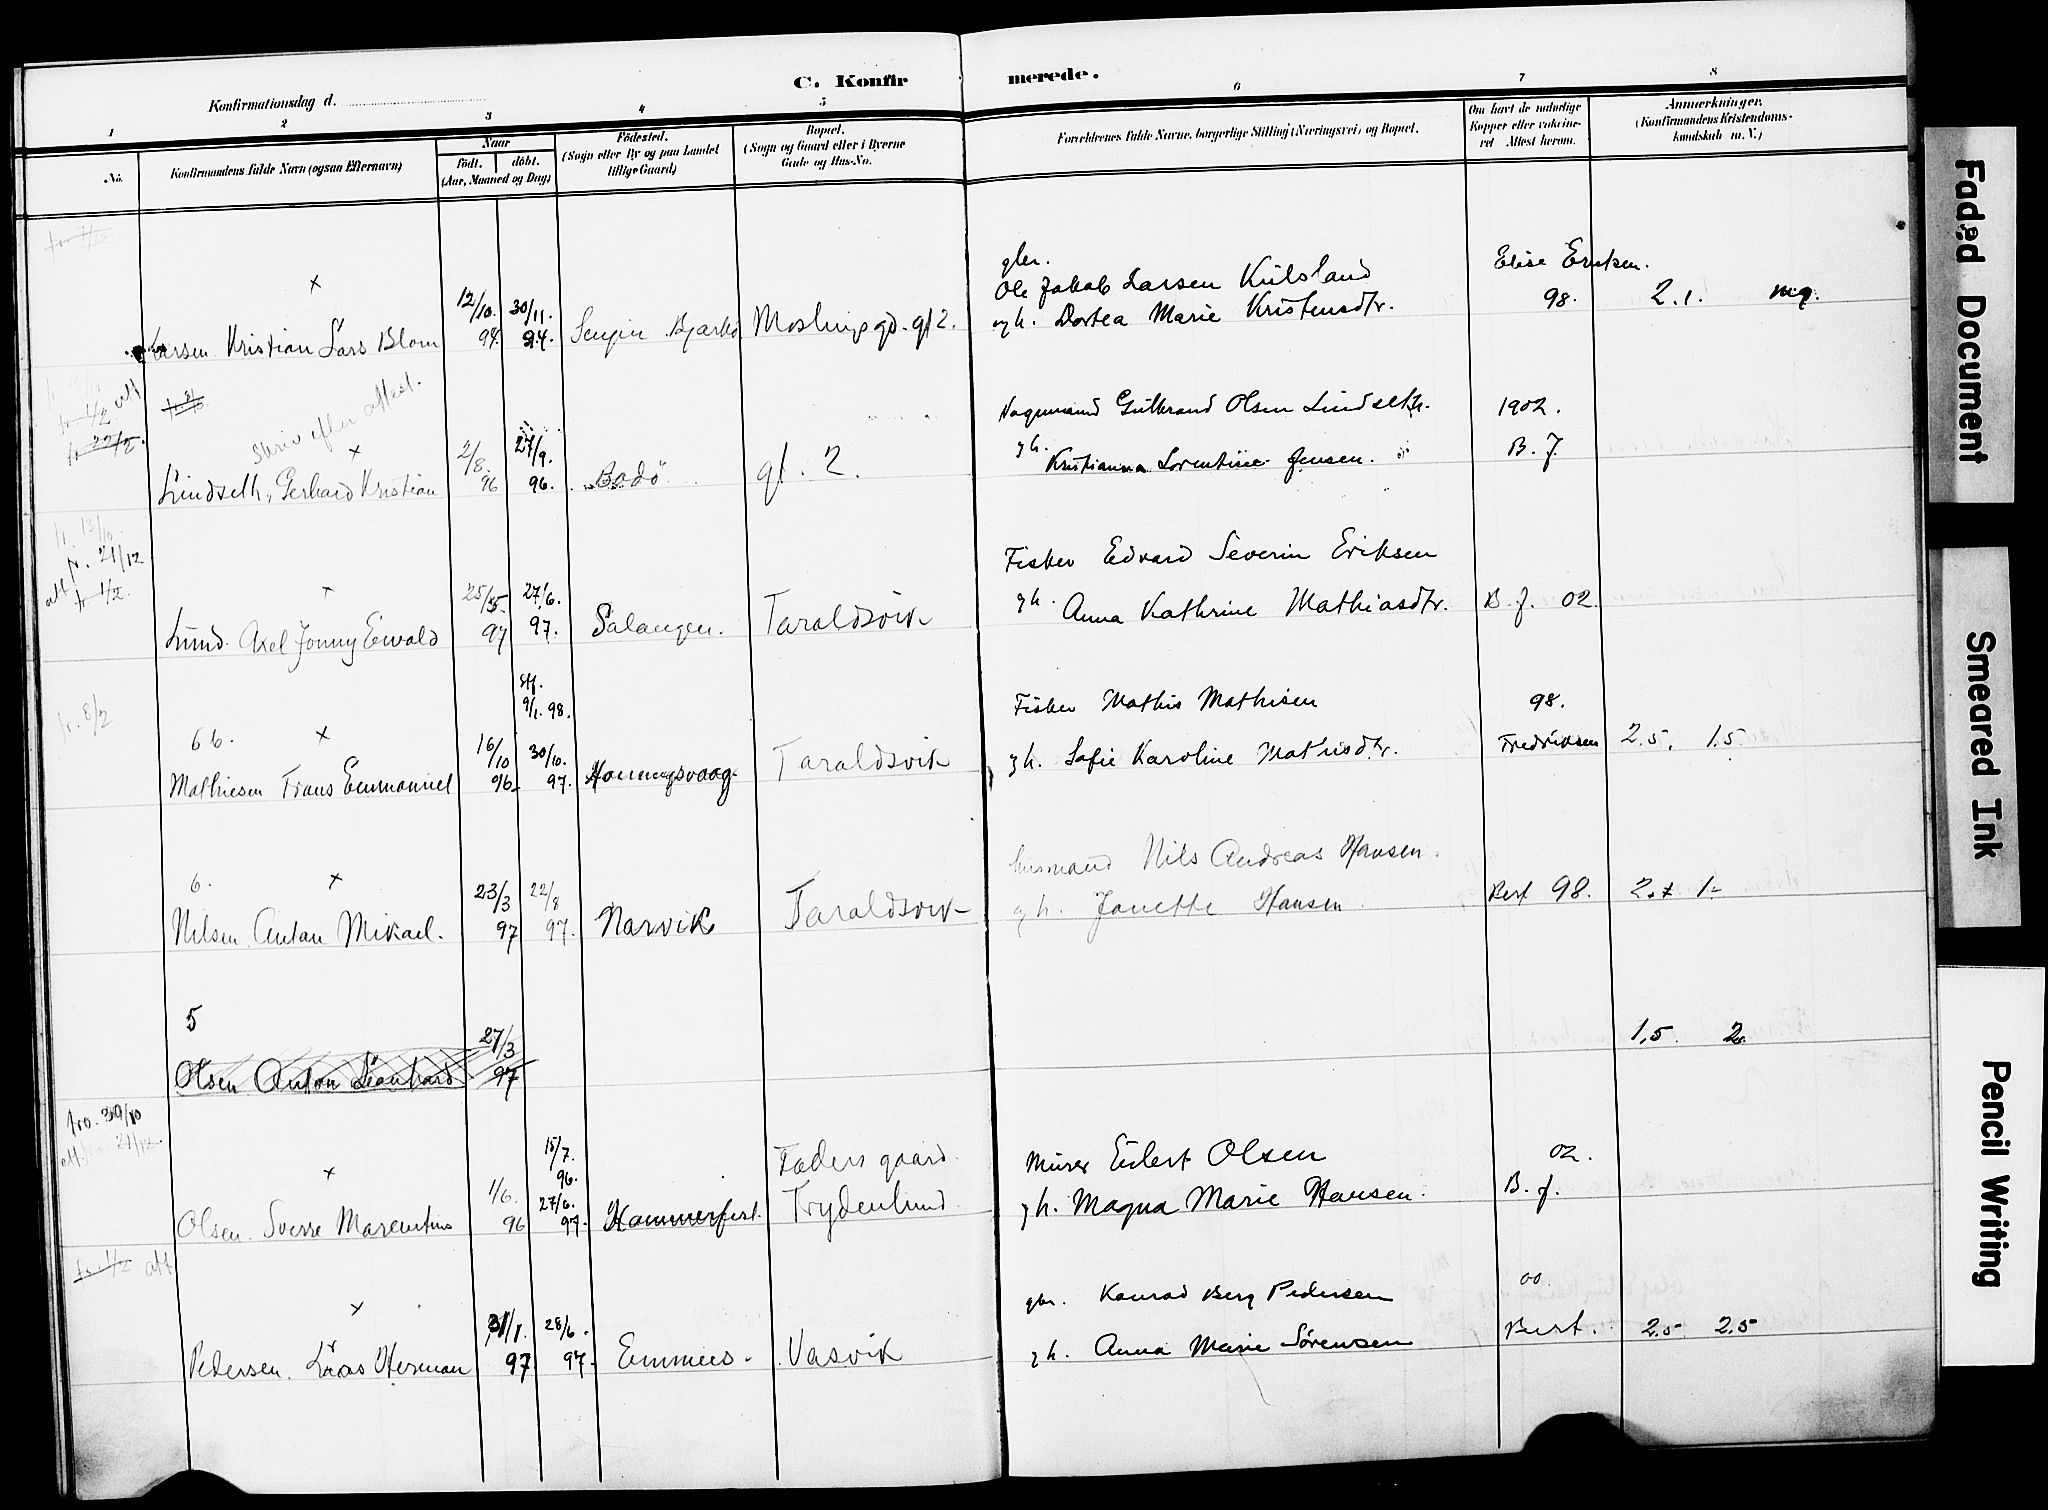 C. Konfir merede.
Konfirmationsdag d.
1 2 3 4 5 6 7 8
No.
Konfirmandens fulde Navn (ogsaa Efternavn)
Naar
födt. döbt.
(Aar, Maaned og Dag)
Födested.
(Sogn eller By og paa Landet
tillige Gaard)
Bopæl.
(Sogn og Gaard eller i Byerne
Gade og Hus-No.
Forældrenes fulde Navne, borgerlige Stilling (Næringsvei) og Bopæl.
Om havt de naturlige
Kopper eller vakcine-
ret Attest herom.
Anmærkninger.
(Konfirmandens Kristendoms-
kundskab m. V.)
x
12/10. 30/11.
Larsen Kristian Lars Blom 94. 94.
Moslings gd. gt 2.
gbr.
Ole Jakob Larsen
gh. Dortea Marie Kristensdtr.
Elise
98. 2.1. mg.
fr. 1/2 att
fr. 22/2.
Skriv efter attest.
x
2/8. 27/9.
Lindseth, Gerhard Kristian 96 96. Bodö gt. 2.
Gulbrand Olsen Lindseth. 1902.
gh. Kristianna Lorentine Jensen. B. f.
fr. 13/10.
fr. 21/12
att fr 1/2.
x
25/5. 27/6.
Lund. Axel Jonny Eivald 97 97. Salangen. Taraldsvik
Fisker Edvard Severin Eriksen
gh. Anna Kathrine Mathiasdtr. B. f. 02.
fr. 8/2
9/1. 98.
6b. x 16/10 30/10.
Mathiesen Frans Emmanuel 96. 97. Honningsvaag. Taraldsvik
Fisker Mathis Mathisen 98.
gh. Sofie Karoline Mathisdtr. Fredriksen 2.5. 1.5.
6. x 23/3 22/8
Nilsen Anton Mikael. 97 97. Narvik Taraldsvik
husmand Nils Andreas Hansen.
gh. Janette Hansen. Berf 98.
5 27/3
Olsen Anton Leonhard 97
1,5. 2.
fro. 30/10
att 21/12.
x 1/6. 15/7.
96.
27/6.
Olsen. Sverre Marentius 96 97. Hammerfest. Faders gaard.
Trydenlund.
Murer Eilert Olsen 02.
gh. Magna Marie Hansen. B. f.
fr. 1/2 att
x 31/1. 28/6.
Pedersen. Laars Herman 97 97. Emmenes. Vasvik
gbr. Konrad Berg Pedersen 00.
gh. Anna Marie Sörensen Berf. 2.5. 2.5
Faded Document
Smeared Ink
Pencil Writing